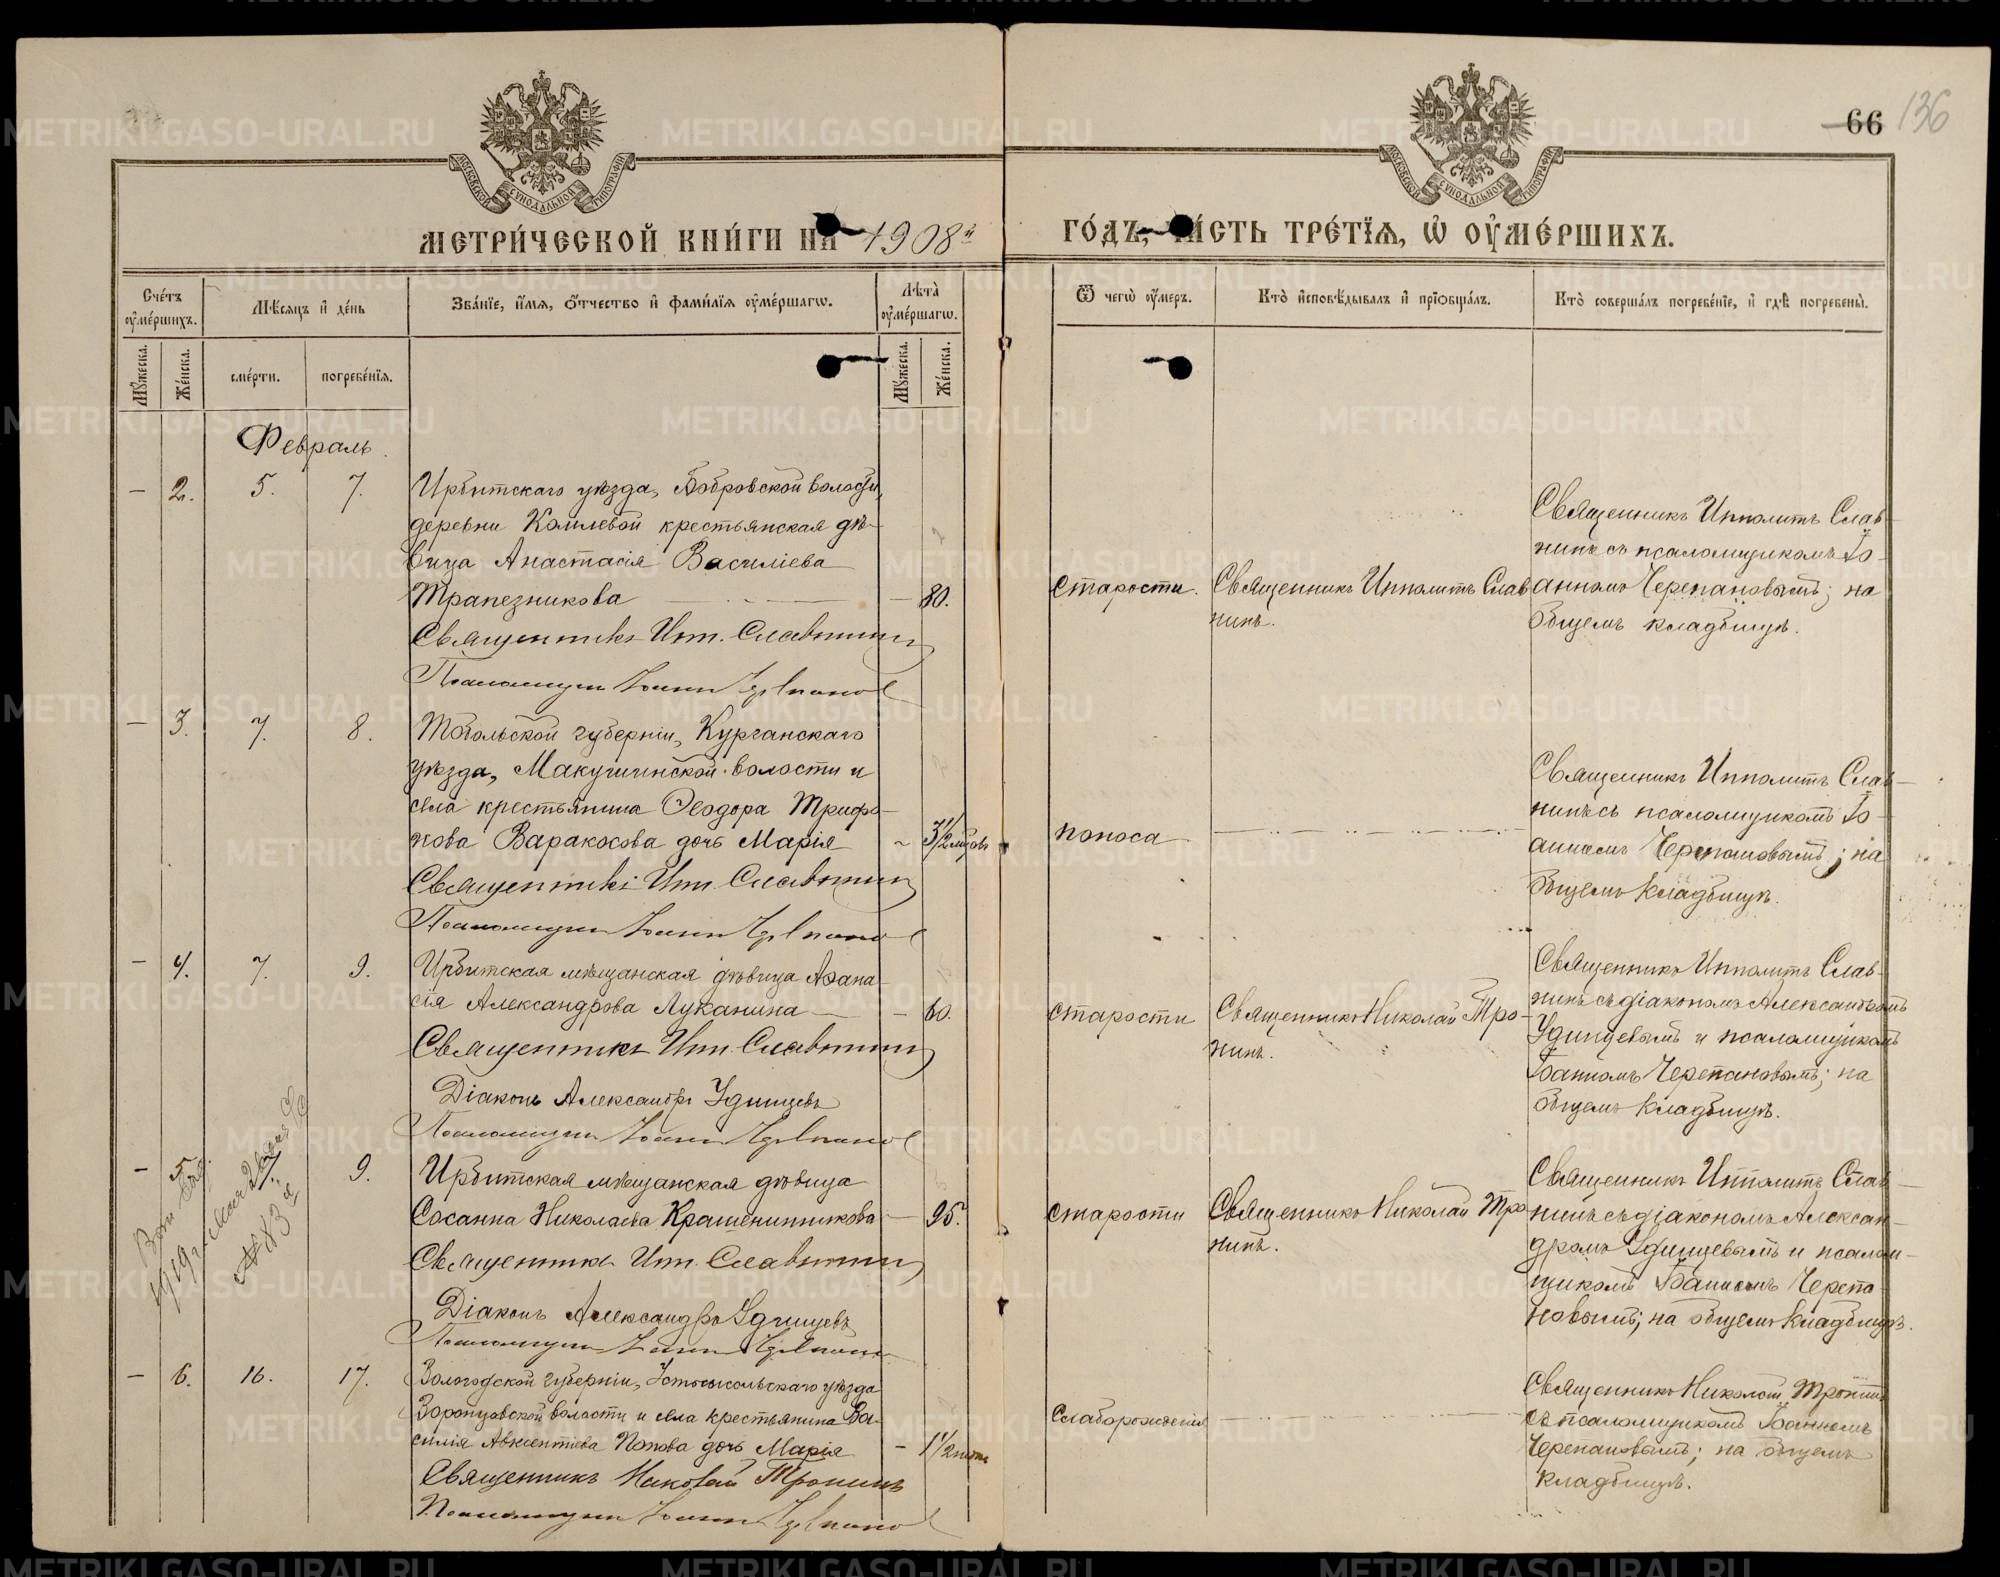 66 136
МОСКОВСКОЙ СѴНОДАЛЬНОЙ ТИПОГРАФІИ
МОСКОВСКОЙ СѴНОДАЛЬНОЙ ТИПОГРАФІИ
МЕТРИ́ЧЕСКОЙ КНИ́ГИ НА 1908й ГО́ДЪ, ЧА́СТЬ ТРЕ́ТІѦ, Ѡ҆ ОУ҆МЕ́РШИХЪ.
Сче́тъ оу҆ме́ршихъ.
Мѣ́сѧцъ и҆ де́нь
Зва́нїе, и҆́мѧ, ѻ҆́тчество и҆ фами́лїѧ оу҆ме́ршагѡ.
Лѣта̀ оу҆ме́ршагѡ.
Ѿ чегѡ̀ оу҆́меръ.
Кто̀ и҆сповѣ́дывалъ и҆ прїѡбща́лъ.
Кто̀ соверша́лъ погребе́нїе, и҆ гдѣ̀ погребены̀.
Мꙋ́жеска.
Же́нска.
сме́рти.
погребе́нїѧ.
Мꙋ́жеска.
Же́нска.
Февраль.
— 2. 5. 7.
Ирбитскаго уѣзда, Бобровской волости,
деревни Комлевой крестьянская дѣ-
вица Анастасія Василіева
Трапезникова — 80.
Священникъ Ип. Славнинъ
Псаломщикъ Іоаннъ Черепановъ
старости.
Священникъ Ипполитъ Слав
нинъ.
Священникъ Ипполитъ Слав-
нинъ съ псаломщикомъ Іо-
анномъ Черепановымъ; на
общемъ кладбищѣ.
— 3. 7. 8.
Тобольской губерніи, Курганскаго
уѣзда, Макушинской волости и
села крестьянина Ѳеодора Трифо-
нова Варакосова дочь Марія — 3½ мѣсяц.
Священникъ Ип. Славнинъ
Псаломщикъ Іоаннъ Черепановъ
поноса
Священникъ Ипполитъ Слав-
нинъ съ псаломщикомъ Іо-
анномъ Черепановымъ; на
общемъ кладбищѣ.
— 4. 7. 9.
Ирбитская мѣщанская дѣвица Аѳана-
сія Александрова Луканина — 60.
Священникъ Ип. Славнинъ
Діаконъ Александръ Удинцевъ
Псаломщикъ Іоаннъ Черепановъ
старости
Священникъ Николай Тро-
нинъ.
Священникъ Ипполитъ Слав-
нинъ съ діакономъ Александромъ
Удинцевымъ и псаломщикомъ
Іоанномъ Черепановымъ; на
общемъ кладбищѣ.
— 5. 7. 9.
1919 г. мая 2
№ 83
Ирбитская мѣщанская дѣвица
Сосанна Николаева Крашенинникова — 95.
Священникъ Ип. Славнинъ
Діаконъ Александръ Удинцевъ
Псаломщикъ Іоаннъ Черепановъ
старости
Священникъ Николай Тро-
нинъ.
Священникъ Ипполитъ Слав-
нинъ съ діакономъ Алексан-
дромъ Удинцевымъ и псалом-
щикомъ Іоанномъ Черепа-
новымъ; на общемъ кладбищѣ.
— 6. 16. 17.
Вологодской губерніи, Устьсысольскаго уѣзда
Воронцовской волости и села крестьянина Ва-
силія Авксентіева Попова дочь Марія — 1½ мѣс.
Священникъ Николай Тронинъ
Псаломщикъ Іоаннъ Черепановъ
Слаборожденія
Священникъ Николай Тронинъ
съ псаломщикомъ Іоанномъ
Черепановымъ; на общемъ
кладбищѣ.
METRIKI.GASO-URAL.RU